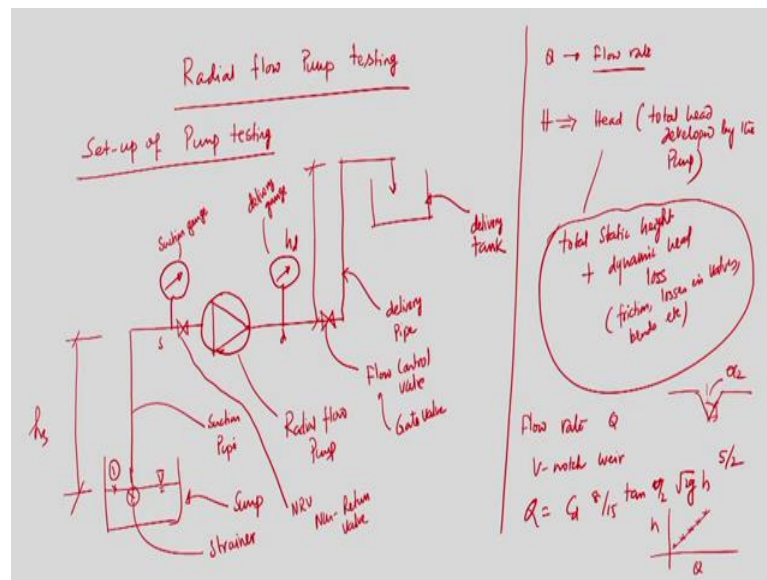 Radial flow Pump testing
Set-up of Pump testing
Suction gauge
delivery gauge
hd
delivery tank
S
d
delivery Pipe
Flow Control Valve
Gate Valve
Radial flow Pump
hs
Suction Pipe
①
Sump
Strainer
NRV
Non-Return Valve
Q → Flow rate
H ⇒ Head (total head
developed by the
Pump)
total Static height
+ dynamic head
loss
(friction, losses in valves,
bends etc)
Flow rate Q
V-notch weir
Q = Cd 8/15 tan α/2 √2g h 5/2
α/2
h
Q